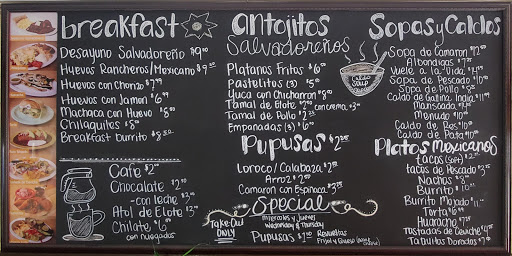 breakfast
Desayuno Salvadoreño $9.00
Huevos Rancheros/Mexicano $9.25
Huevos con Chorizo $7.99
Huevos con Jamon $6.99
Machaca con Huevo $8.00
Chilaquiles $8.50
Breakfast burrito $8.50
Café $2.00
Chocolate $2.50
- con leche $3.00
Atol de Elote $3.00
Chilate $6.00
con nuegados
antojitos
Salvadoreños
Platanos Fritos $6.00
Pastelitos (3) $5.00
Yuca con Chicharron $8.00
Tamal de Elote $2.00 con crema $3.00
Tamal de Pollo $2.25
Empanadas (3) $6.00
Pupusas $2.25
Loroco / Calabaza $2.50
Arroz $2.50
Camaron con Espinaca $3.75
Special
Take-Out
ONLY
Miercoles y Jueves
Wednesday & Thursday
Pupusas $1.50 Revueltas
Frijol y Queso
Sopas y Caldos
Caldo
Soup
Sopa de Camaron $12.00
Albondigas
Vuelve a la Vida
Sopa de Pescado
Sopa de Res
Caldo de Gallina India $11.99
Mariscada
Menudo
Caldo de Res
Caldo de Pata
Platos Mexicanos
tacos (soft)
tacos de Pescado
Nachos
Burrito
Burrito Mojado
Torta
Huarache
Tostadas de Ceviche
Taquitos Dorados